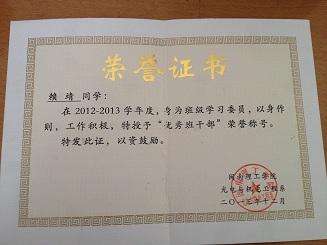 荣誉证书
赖 靖 同学：
在 2012-2013 学年度，身为班级学习委员，以身作
则，工作积极，特授予“优秀班干部”荣誉称号。
特发此证，以资鼓励。
闽南理工学院
光电与机电工程系
二〇一三年十二月